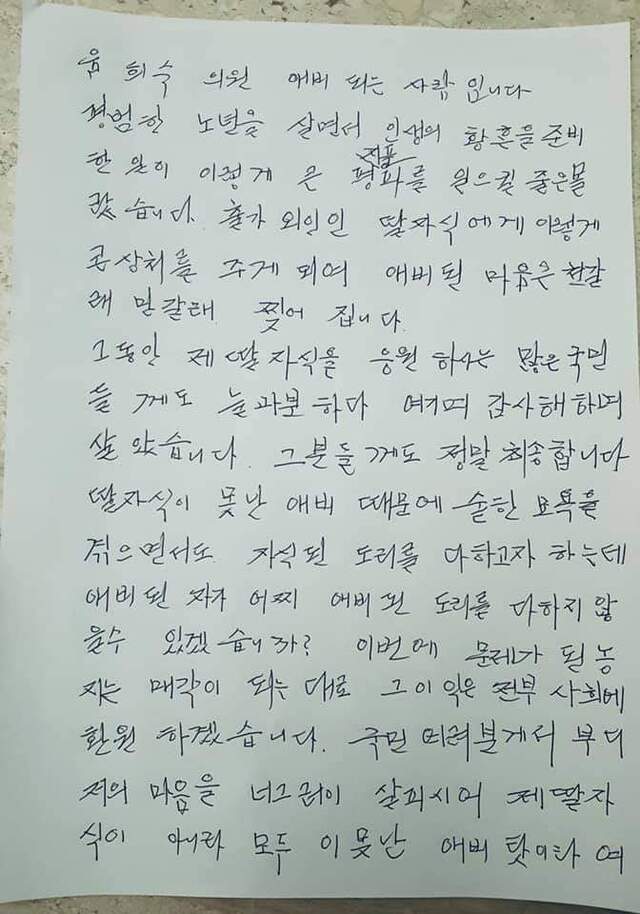 윤 희숙 의원 애비 되는 사람 입니다
평범한 노년을 살면서 인생의 황혼을 준비
한 일이 이렇게 큰 평파를 일으킬 줄은몰
지표
랐습니다. 출가 외인인 딸자식에게 이렇게
큰상처를 주게 되여 애비된 마음은 한갈
래 만갈래 찢어 집니다.
그동안 제 딸자식을 응원 하시는 많은국민
들 께도 늘과분 하다 여기며 감사해하며
살았습니다. 그분들께도 정말 죄송합니다
딸자식이 못난 애비 때문에 숱한 모욕을
겪으면서도 자식된 도리를 다하고자 하는데
애비된 자가 어찌 애비된 도리를 다하지 않
을수 있겠습니까? 이번에 문제가 된 농
지는 매각이 되는 대로 그 이익은 전부 사회에
환원 하겠습니다. 국민 여러분게서 부디
저의 마음을 너그러이 살피시어 제 딸자
식이 아니라 모두 이 못난 애비 탓이라 여